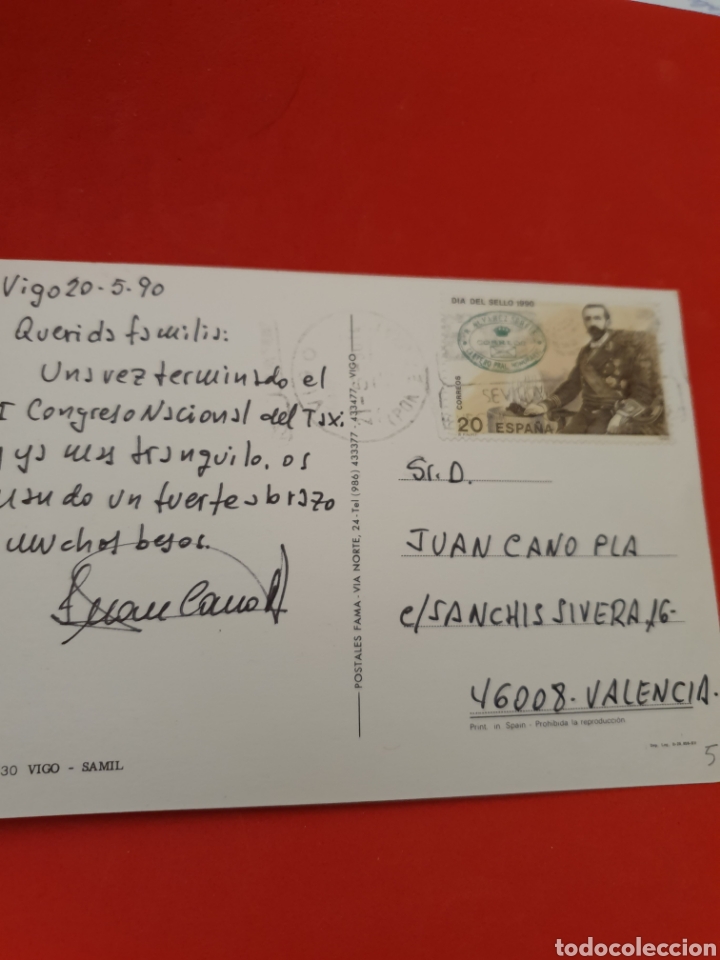 Vigo 20-5-90
Querida familia:
Una vez terminado el
I Congreso Nacional del Taxi.
y ya mas tranquilo, os
mando un fuerte abrazo
muchos besos.
Juan Cano
POSTALES FAMA - VIA NORTE, 24 - Tel (986) 433377 - 433477 - VIGO
DIA DEL SELLO 1990
CORREOS
20 ESPAÑA
Sr. D.
JUAN CANO PLA
c/ SANCHIS SIVERA, 16-
46008 - VALENCIA -
Print. in Spain - Prohibida la reproducción
30 VIGO - SAMIL
5
todocoleccion